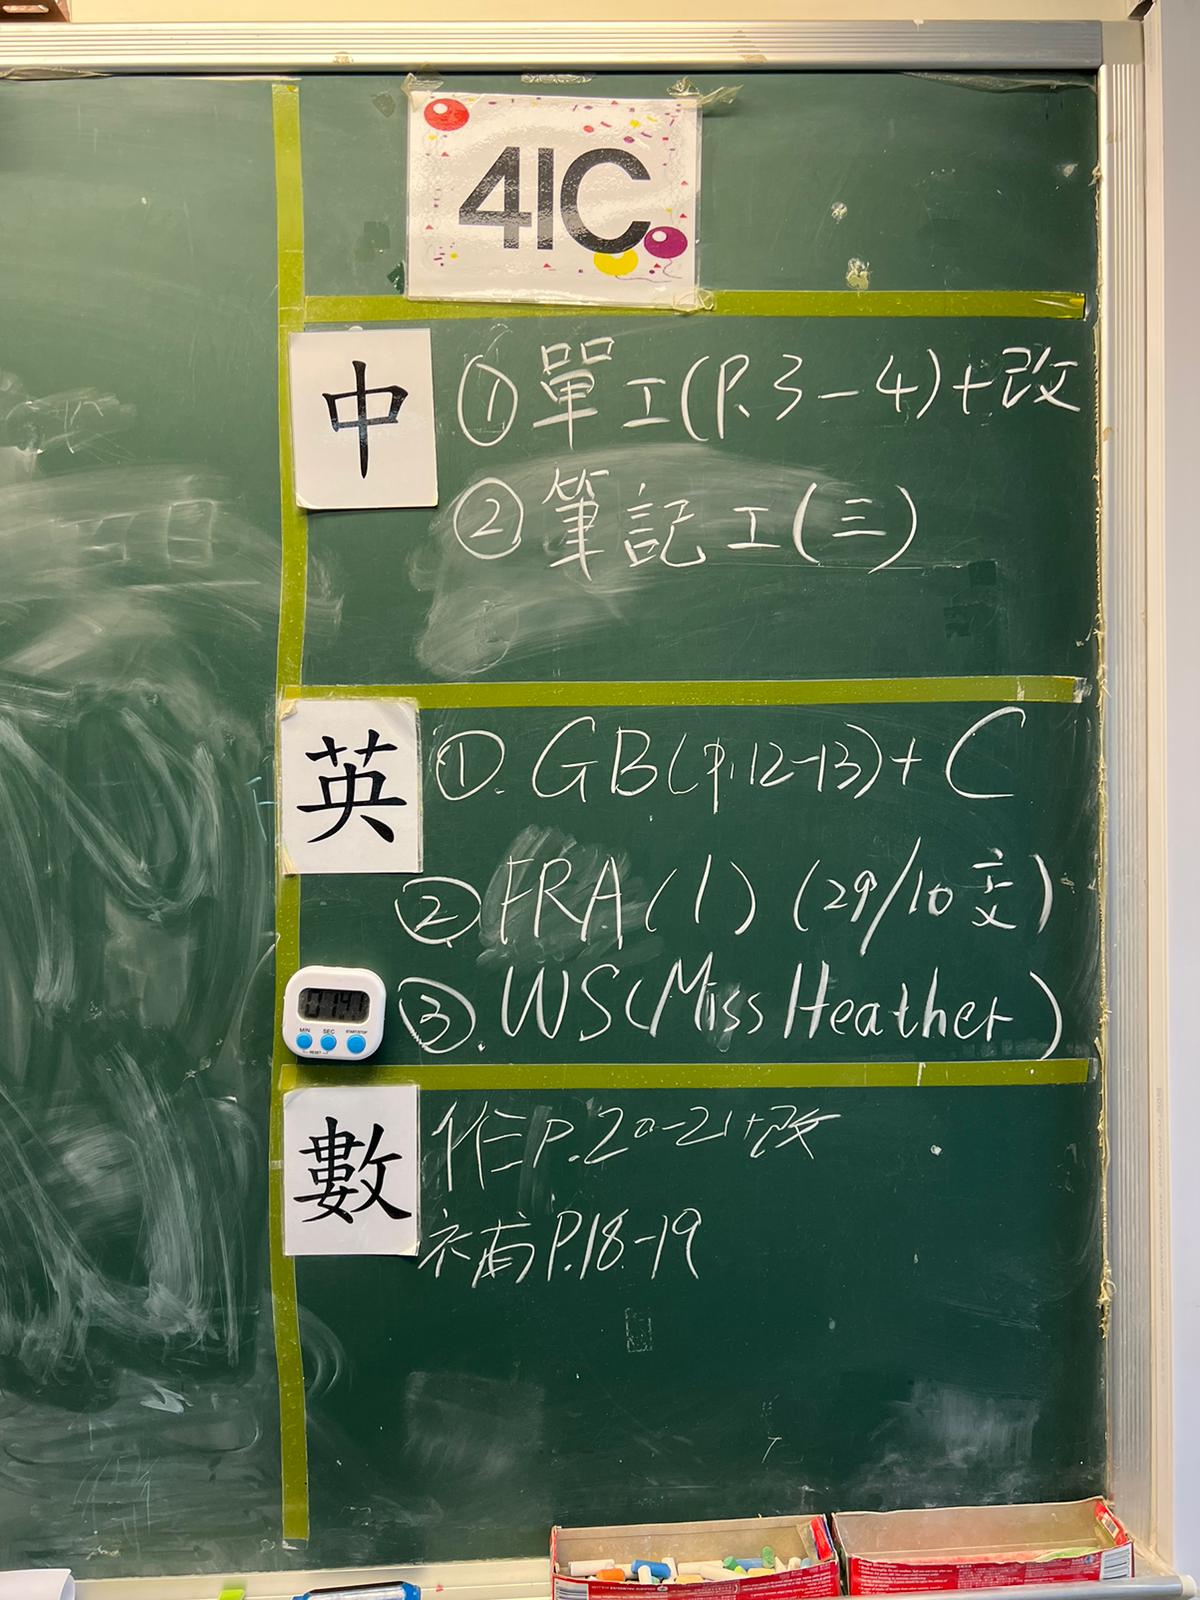 41C
中
①單工(P.3-4)+改
②筆記工(三)
英
①.GB(p.12-13)+C
②FRA(1) (29/10交)
③.WS(Miss Heather)
MIN SEC START/STOP
RESET
數
作P.20-21+改
補P.18-19